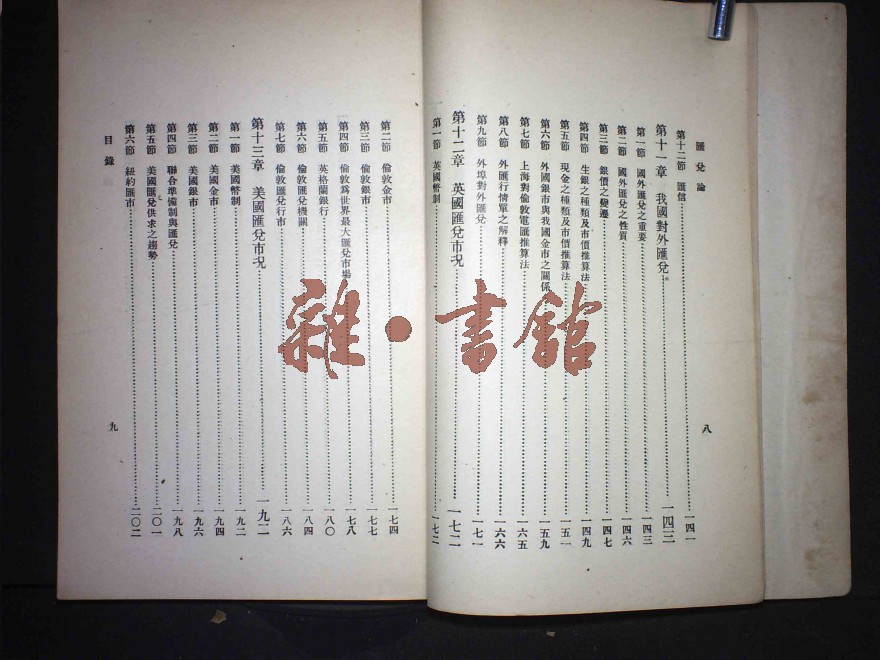 匯兌論
第十二節 匯信 一四一
第十一章 我國對外匯兌 一四三
第一節 國外匯兌之重要 一四三
第二節 國外匯兌之性質 一四六
第三節 銀價之變遷 一四七
第四節 生銀之種類及市價推算法 一四九
第五節 現金之種類及市價推算法 一五一
第六節 外國銀市與我國金市之關係 一五九
第七節 上海對倫敦電匯推算法 一六五
第八節 外匯行情單之解釋 一六六
第九節 外埠對外匯兌 一七一
第十二章 英國匯兌市況 一七二
第一節 英國幣制 一七二
八
第二節 倫敦金市 一七四
第三節 倫敦銀市 一七七
第四節 倫敦為世界最大匯兌市場 一七八
第五節 英格蘭銀行 一八〇
第六節 倫敦匯兌機關 一八四
第七節 倫敦匯兌行市 一八六
第十三章 美國匯兌市況 一九二
第一節 美國幣制 一九二
第二節 美國金市 一九四
第三節 美國銀市 一九六
第四節 聯合準備制與匯兌 一九八
第五節 美國匯兌供求之趨勢 二〇一
第六節 紐約匯市 二〇二
目錄
九
雜·書館